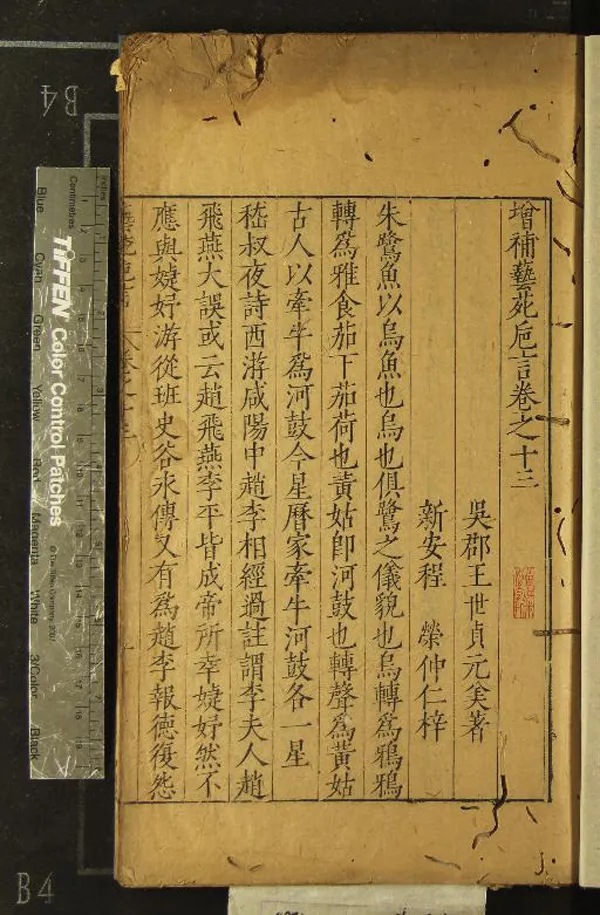 增補藝苑巵言卷之十三
吳郡王世貞元美著
新安程 榮仲仁梓
朱鷺魚以烏魚也烏也俱鷺之儀貌也烏轉爲鴉鴉
轉爲雅食茄下茄荷也黃姑卽河鼓也轉聲爲黃姑
古人以牽牛爲河鼓今星曆家牽牛河鼓各一星
嵇叔夜詩西游咸陽中趙李相經過註謂李夫人趙
飛燕大誤或云趙飛燕李平皆成帝所幸婕妤然不
應與婕妤游從班史谷永傳又有爲趙李報德復怨
B4
inches
Centimetres
TIFFEN Color Control Patches
© The Tiffen Company, 2007
Blue
Cyan
Green
Yellow
Red
Magenta
White
3/Color
Black
B4